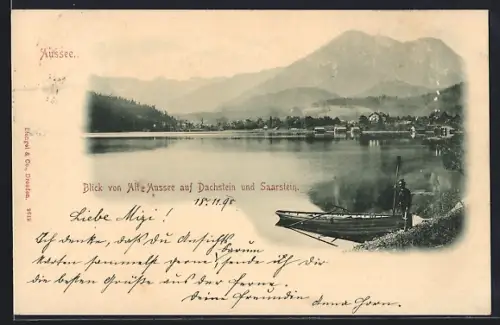 Aussee.
Blick von Alt-Aussee auf Dachstein und Saarstein.
18.11.98
Liebe Mizi!
Ich denke, daß du Ansichts
karten sammelst gerne, darum sende ich dir
die besten Grüße aus der Ferne.
deine Freundin Anna Horn.
Stengel & Co., Dresden.